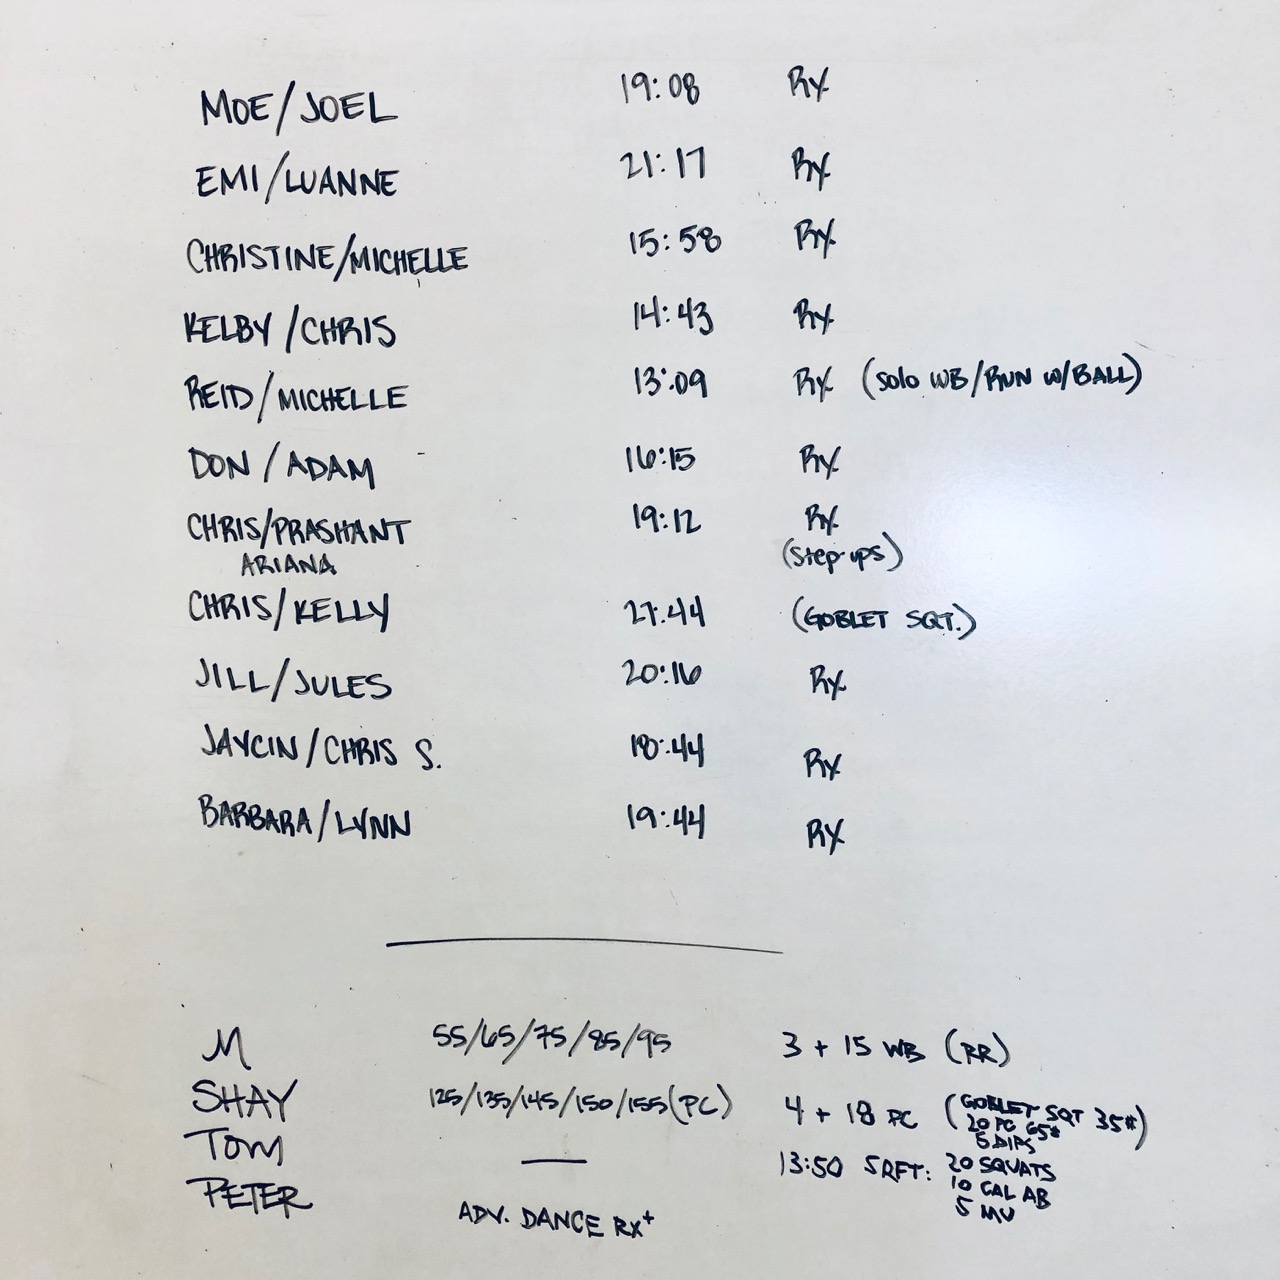 MOE/JOEL 19:08 RX
EMI/LUANNE 21:17 RX
CHRISTINE/MICHELLE 15:58 RX
KELBY/CHRIS 14:43 RX
REID/MICHELLE 13:09 RX (SOLO WB/RUN W/BALL)
DON/ADAM 16:15 RX
CHRIS/PRASHANT 19:12 RX
ARIANA (Step-ups)
CHRIS/KELLY 27:44 (GOBLET SQT.)
JILL/JULES 20:16 RX
JAYCIN/CHRIS S. 18:44 RX
BARBARA/LYNN 19:44 RX
M 55/65/75/85/95 3 + 15 WB (RR)
SHAY 125/135/145/150/155(PC) 4 + 18 PC (GOBLET SQT 35#)
20 PC 65#
5 DIPS
TOM — 13:50 5RFT: 20 SQUATS
10 CAL AB
5 MU
PETER ADV. DANCE RX+